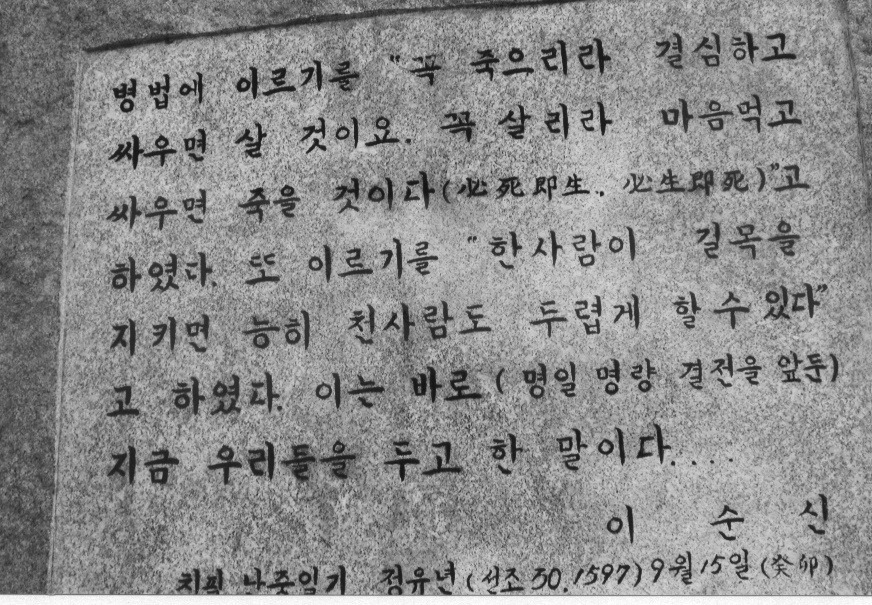 병법에 이르기를 "꼭 죽으리라 결심하고
싸우면 살 것이요. 꼭 살리라 마음먹고
싸우면 죽을 것이다(必死即生. 必生即死)"고
하였다. 또 이르기를 "한사람이 길목을
지키면 능히 천사람도 두렵게 할 수 있다"
고 하였다. 이는 바로 (명일 명량 결전을 앞둔)
지금 우리들을 두고 한 말이다....
이 순 신
정유년(선조 30.1597)9월15일(癸卯)